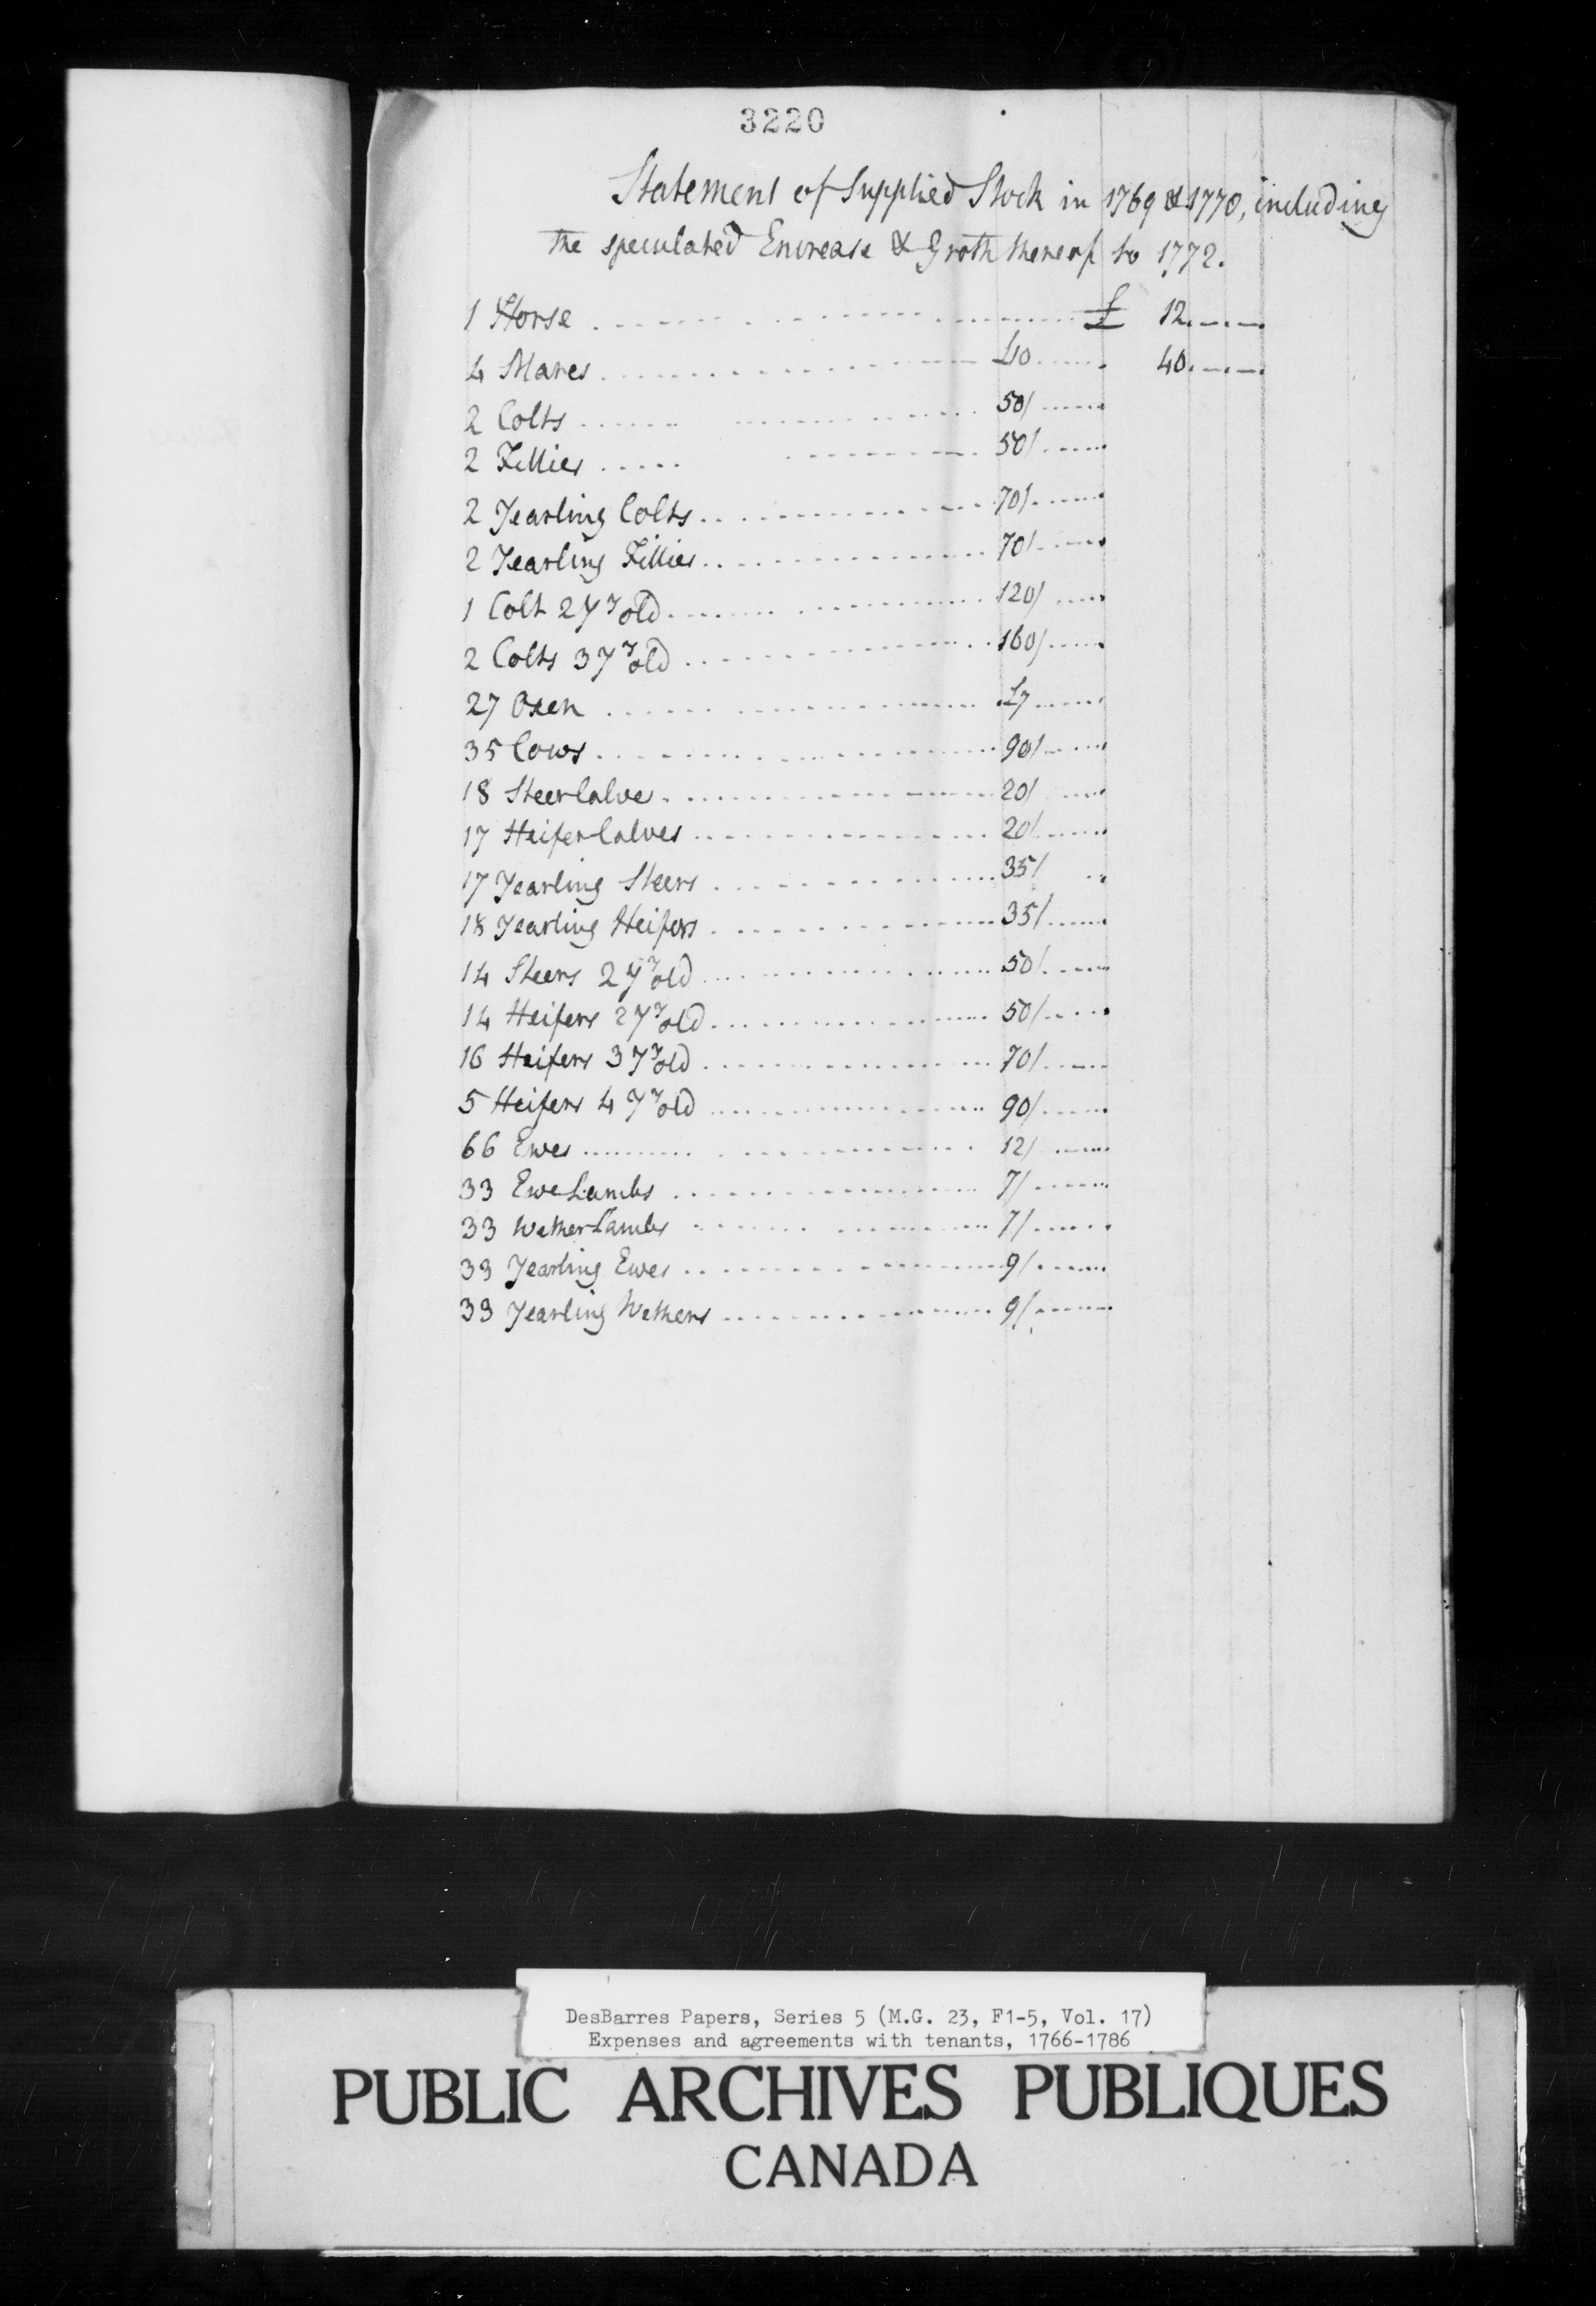 3220
Statement of Supplied Stock in 1769 & 1770, including
the speculated Encrease & Groth thereof to 1772.
1 Horse £ 12
4 Mares £10 40
2 Colts 50/
2 Fillies 50/
2 Yearling Colts 70/
2 Yearling Fillies 70/
1 Colt 2 Yr old 120/
2 Colts 3 Yr old 160/
27 Oxen £7
35 Cows 90/
18 Steer Calve 20/
17 Heifer Calves 20/
17 Yearling Steers 35/
18 Yearling Heifers 35/
14 Steers 2 Yr old 50/
14 Heifers 2 Yr old 50/
16 Heifers 3 Yr old 70/
5 Heifers 4 Yr old 90/
66 Ewes 12/
33 Ewe Lambs 7/
33 Wether Lambs 7/
33 Yearling Ewes 9/
33 Yearling Wethers 9/
DesBarres Papers, Series 5 (M.G. 23, F1-5, Vol. 17)
Expenses and agreements with tenants, 1766-1786
PUBLIC ARCHIVES PUBLIQUES
CANADA